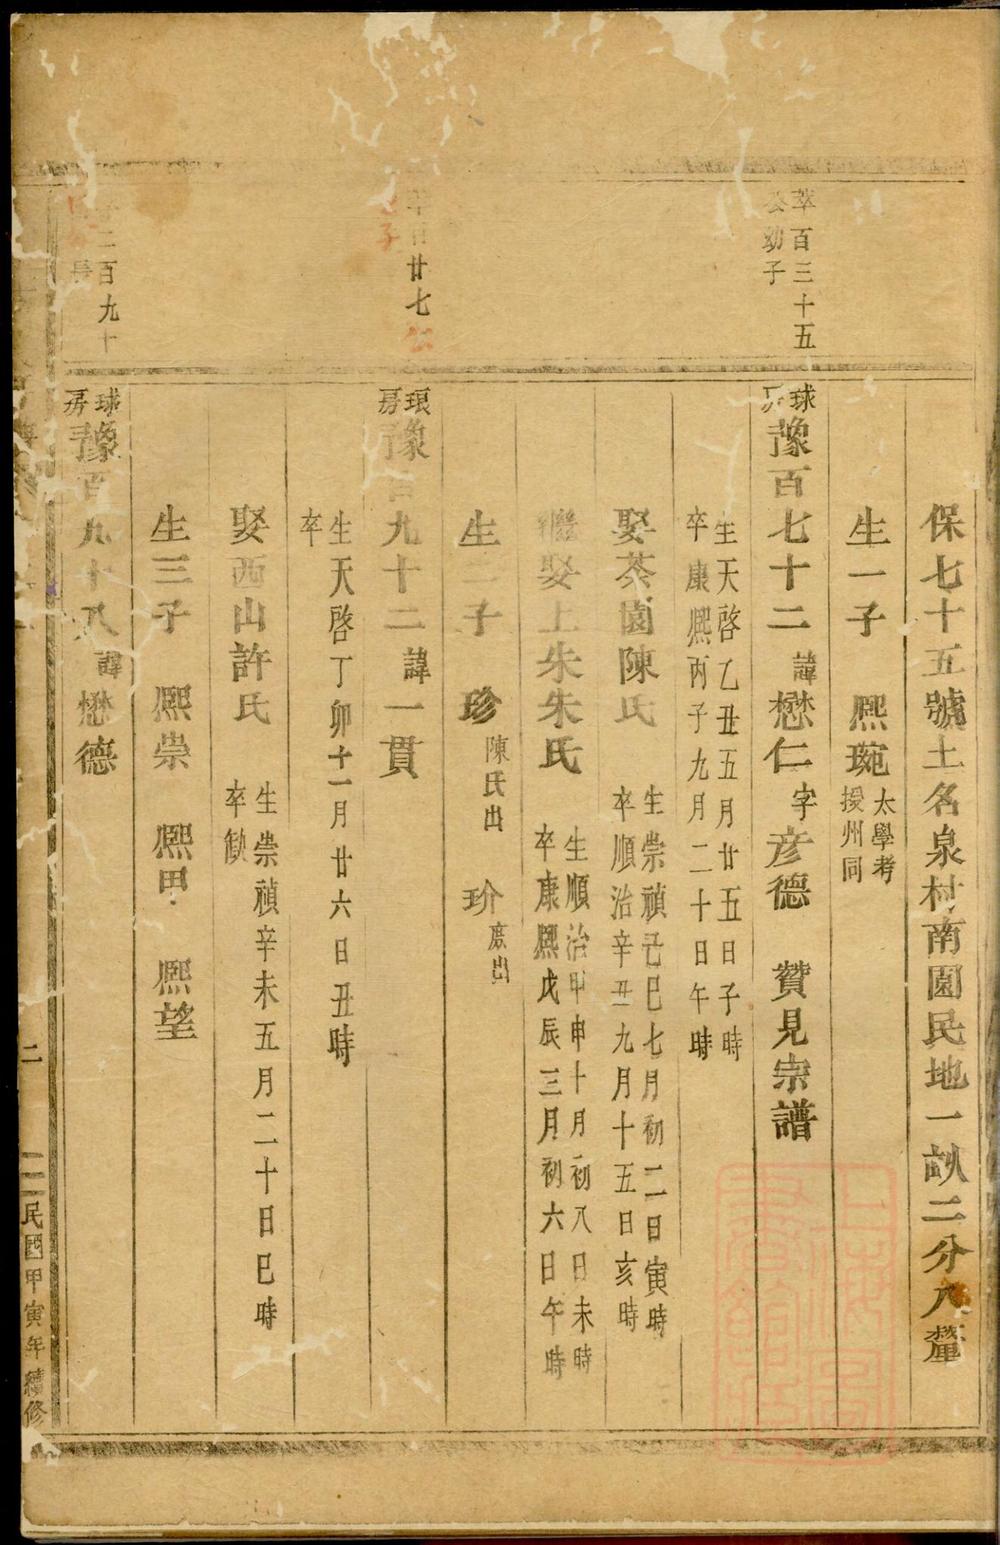 保七十五號土名泉村南園民地一畝二分八釐
生一子 熙琬 太學考
授州同
萃百三十五
公幼子
球房豫百七十二 諱懋仁 字彦德 贊見宗譜
生天啓乙丑五月廿五日子時
卒康熙丙子九月二十日午時
娶茶園陳氏 生崇禎己巳七月初二日寅時
卒順治辛丑九月十五日亥時
繼娶上朱朱氏 生順治甲申十月初八日未時
卒康熙戊辰三月初六日午時
生二子 珍 陳氏出 玠 庶出
百廿七公
子
琅房豫百九十二 諱一貫
生天啓丁卯十一月廿六日丑時
卒
娶西山許氏 生崇禎辛未五月二十日巳時
卒缺
生三子 熙崇 熙甲 熙望
二百九十
長
球房豫百九十八 諱懋德
二
民國甲寅年續修